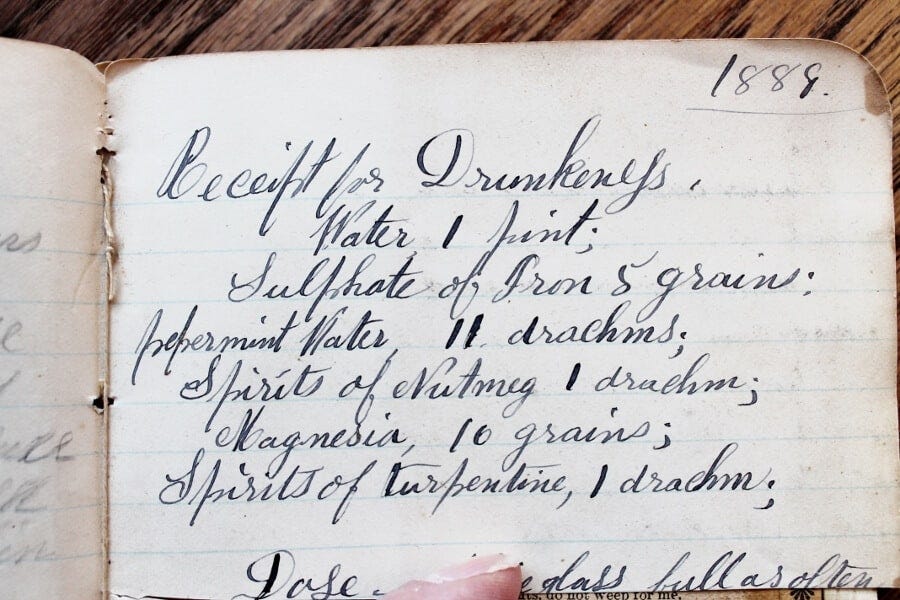 1889.
Receipt for Drunkeness.
Water 1 pint;
Sulphate of Iron 5 grains:
pepermint Water, 11. drachms;
Spirits of Nutmeg 1 drachm;
Magnesia, 10 grains;
Spirits of turpentine, 1 drachm;
Dose - glass full as often
do not weep for me.